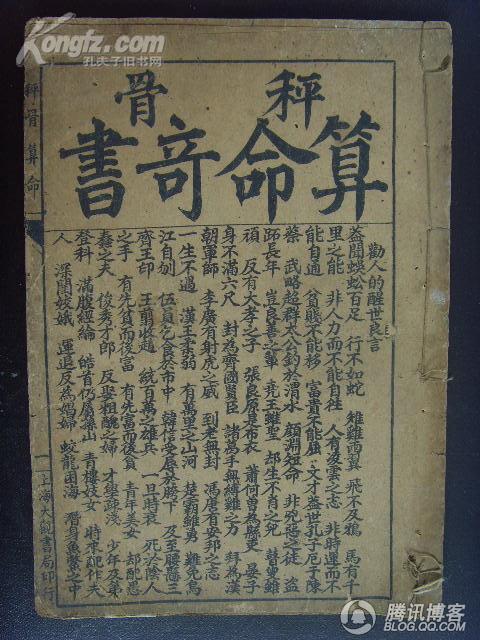 Kongfz.com
孔夫子旧书网
秤骨
算命竒書
秤骨算命
勸人的醒世良言
蓋聞蜈蚣百足 行不如蛇 雄雞两翼 飛不及鴉 馬有千
里之能 非人力而不能自往 人有凌雲之志 非時運而不
能自通 貧賤不能移 富貴不能屈 文才盖世孔子厄于陳
蔡 武略超群太公釣於渭水 顏淵短命 非兇惡之徒 盗
跖長年 豈良善之輩 堯王雖聖 却生不肖之兒 瞽叟雖
頑 反有大孝之子 張良原是布衣 蕭何曾為縣吏 晏子
身不滿六尺 封為齊國賢臣 諸葛手無縛雞之力 拜為漢
朝軍師 李廣有射虎之威 到老無封 馮唐有安邦之志
一生不遇 漢王雖弱 有萬里之山河 楚霸雖勇 難免烏
江自刎 伍員乞食於市中 韓信受辱於胯下 及至腰懸三
齊王印 王翦收趙 統百萬之雄兵 一旦時衰 死於陰人
之手 有先貧而後富 有先富而後貧 青年美女 却配愚
蠢之夫 俊秀才郎 反娶粗醜之婦 才學疎淺 少年及第
登科 滿腹經綸 皓首仍居深山 青樓妓女 時來配作夫
人 深閨嬌娥 運退反為娼婦 蛟龍困海 潛身魚鱉之中
上海大觀書局印行
腾讯博客
BLOG.QQ.COM